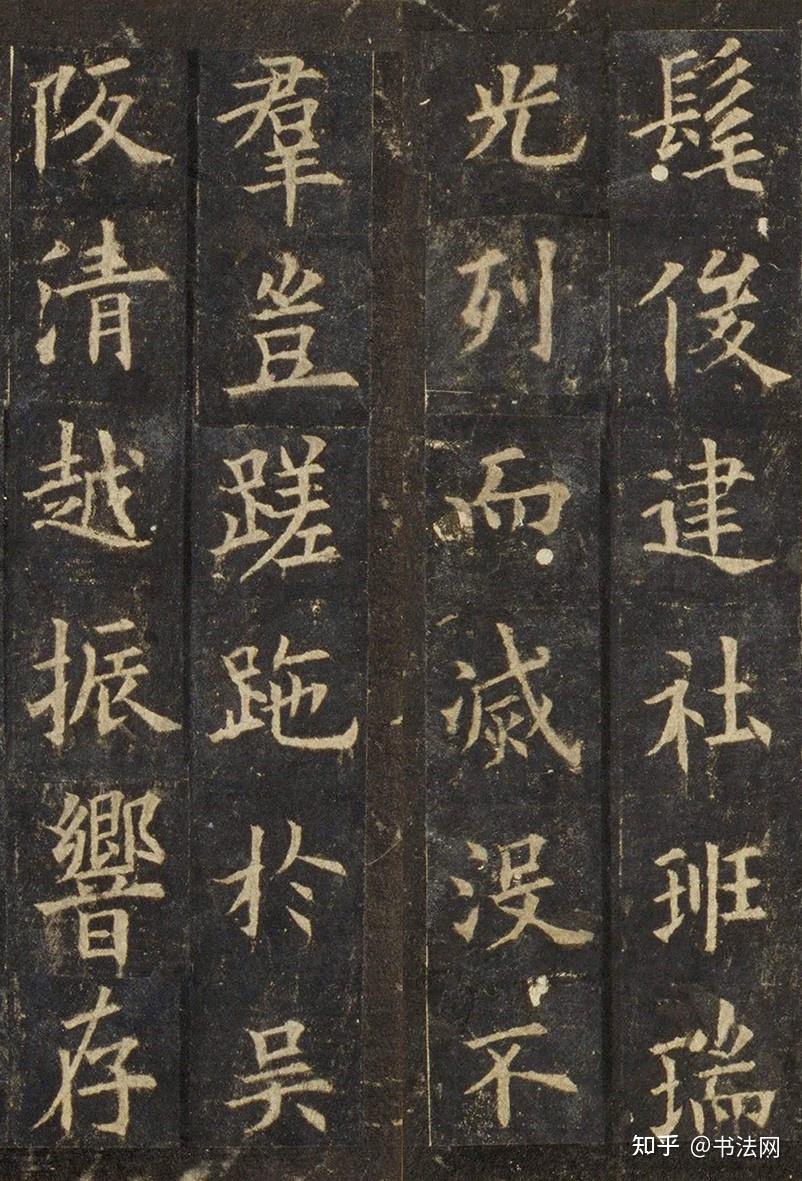 髦俊建社班瑞
光列而滅没不
羣豈蹉跎於吴
阪清越振響存
知乎 @书法网